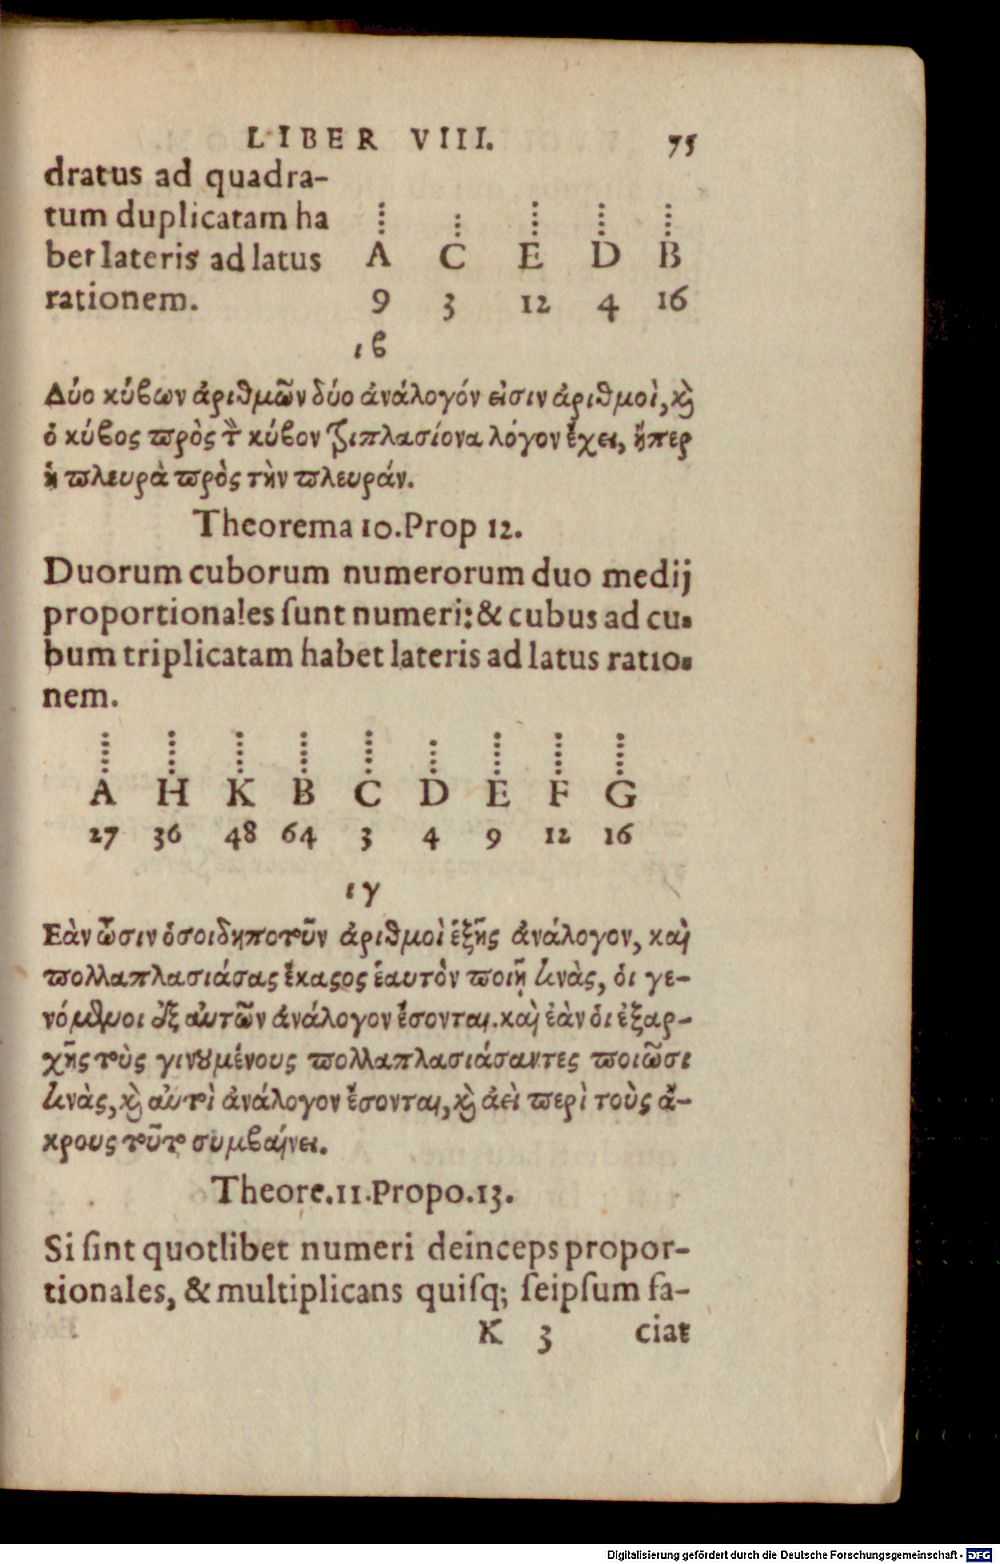 LIBER VIII. 75
dratus ad quadra-
tum duplicatam ha
bet lateris ad latus
rationem.
A C E D B
9 3 12 4 16
ιϐ
Δύο κύϐων ἀριθμῶν δύο ἀνάλογόν εἰσιν ἀριθμοὶ, ϗ̀
ὁ κύϐος ϖρὸς τ̀ κύϐον τριπλασίονα λόγον ἔχει, ἤπερ
ἡ ϖλευρὰ ϖρὸς τὴν ϖλευράν.
Theorema 10. Prop 12.
Duorum cuborum numerorum duo medij
proportionales ſunt numeri: & cubus ad cu-
bum triplicatam habet lateris ad latus ratio-
nem.
A H K B C D E F G
27 36 48 64 3 4 9 12 16
ιγ
Εὰν ὦσιν ὁσοιδηποτοῦν ἀριθμοὶ ἑξῆς ἀνάλογον, καὶ
ϖολλαπλασιάσας ἕκαϛος ἑαυτὸν ϖοιῇ τινὰς, ὁι γε-
νόμενοι ἐξ αὐτῶν ἀνάλογον ἔσονται. καὶ ἐὰν ὁι ἐξαρ-
χῆς τοὺς γινουμένους ϖολλαπλασιάσαντες ϖοιῶσι
τινὰς, ϗ̀ αὐτοὶ ἀνάλογον ἔσονται, ϗ̀ ἀεὶ ϖερὶ τοὺς ἄ-
κρους τοῦτο συμϐαίνει.
Theore. 11. Propo. 13.
Si ſint quotlibet numeri deinceps propor-
tionales, & multiplicans quiſq; ſeipſum fa-
K 3 ciat
Digitalisierung gefördert durch die Deutsche Forschungsgemeinschaft - DFG